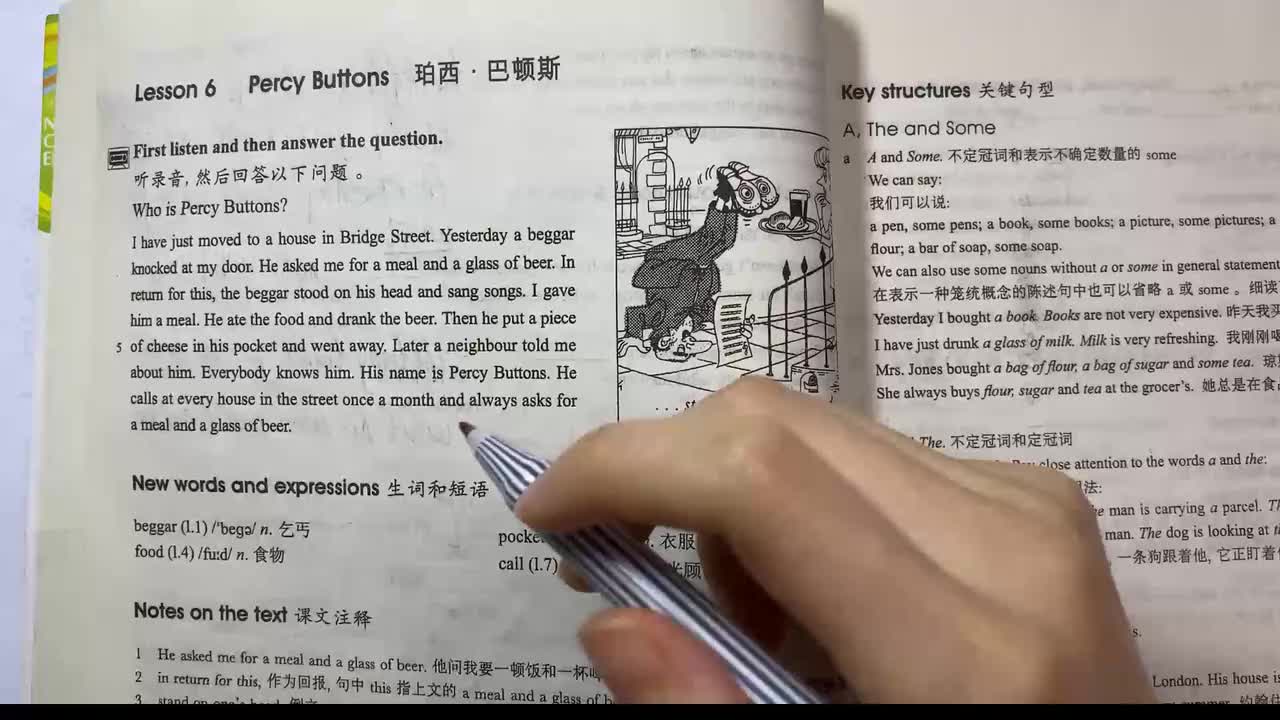 NCE
Lesson 6 Percy Buttons 珀西·巴顿斯
First listen and then answer the question.
听录音,然后回答以下问题。
Who is Percy Buttons?
I have just moved to a house in Bridge Street. Yesterday a beggar
knocked at my door. He asked me for a meal and a glass of beer. In
return for this, the beggar stood on his head and sang songs. I gave
him a meal. He ate the food and drank the beer. Then he put a piece
5 of cheese in his pocket and went away. Later a neighbour told me
about him. Everybody knows him. His name is Percy Buttons. He
calls at every house in the street once a month and always asks for
a meal and a glass of beer.
New words and expressions 生词和短语
beggar (l.1) /'begə/ n. 乞丐
food (l.4) /fu:d/ n. 食物
衣服
call (l.7)
光顾
Notes on the text 课文注释
1 He asked me for a meal and a glass of beer. 他问我要一顿饭和一杯
2 in return for this, 作为回报, 句中 this 指上文的 a meal and a glass of
3 stand on one's head, 倒立
Key structures 关键句型
A, The and Some
a A and Some. 不定冠词和表示不确定数量的 some
We can say:
我们可以说:
a pen, some pens; a book, some books; a picture, some pictures; a
flour; a bar of soap, some soap.
We can also use some nouns without a or some in general statement
在表示一种笼统概念的陈述句中也可以省略 a 或 some 。细读
Yesterday I bought a book. Books are not very expensive. 昨天我买
I have just drunk a glass of milk. Milk is very refreshing. 我刚刚喝
Mrs. Jones bought a bag of flour, a bag of sugar and some tea. 琼
She always buys flour, sugar and tea at the grocer's. 她总是在食
The. 不定冠词和定冠词
close attention to the words a and the:
法:
man is carrying a parcel.
man. The dog is looking at
一条狗跟着他, 它正盯着
London. His house is